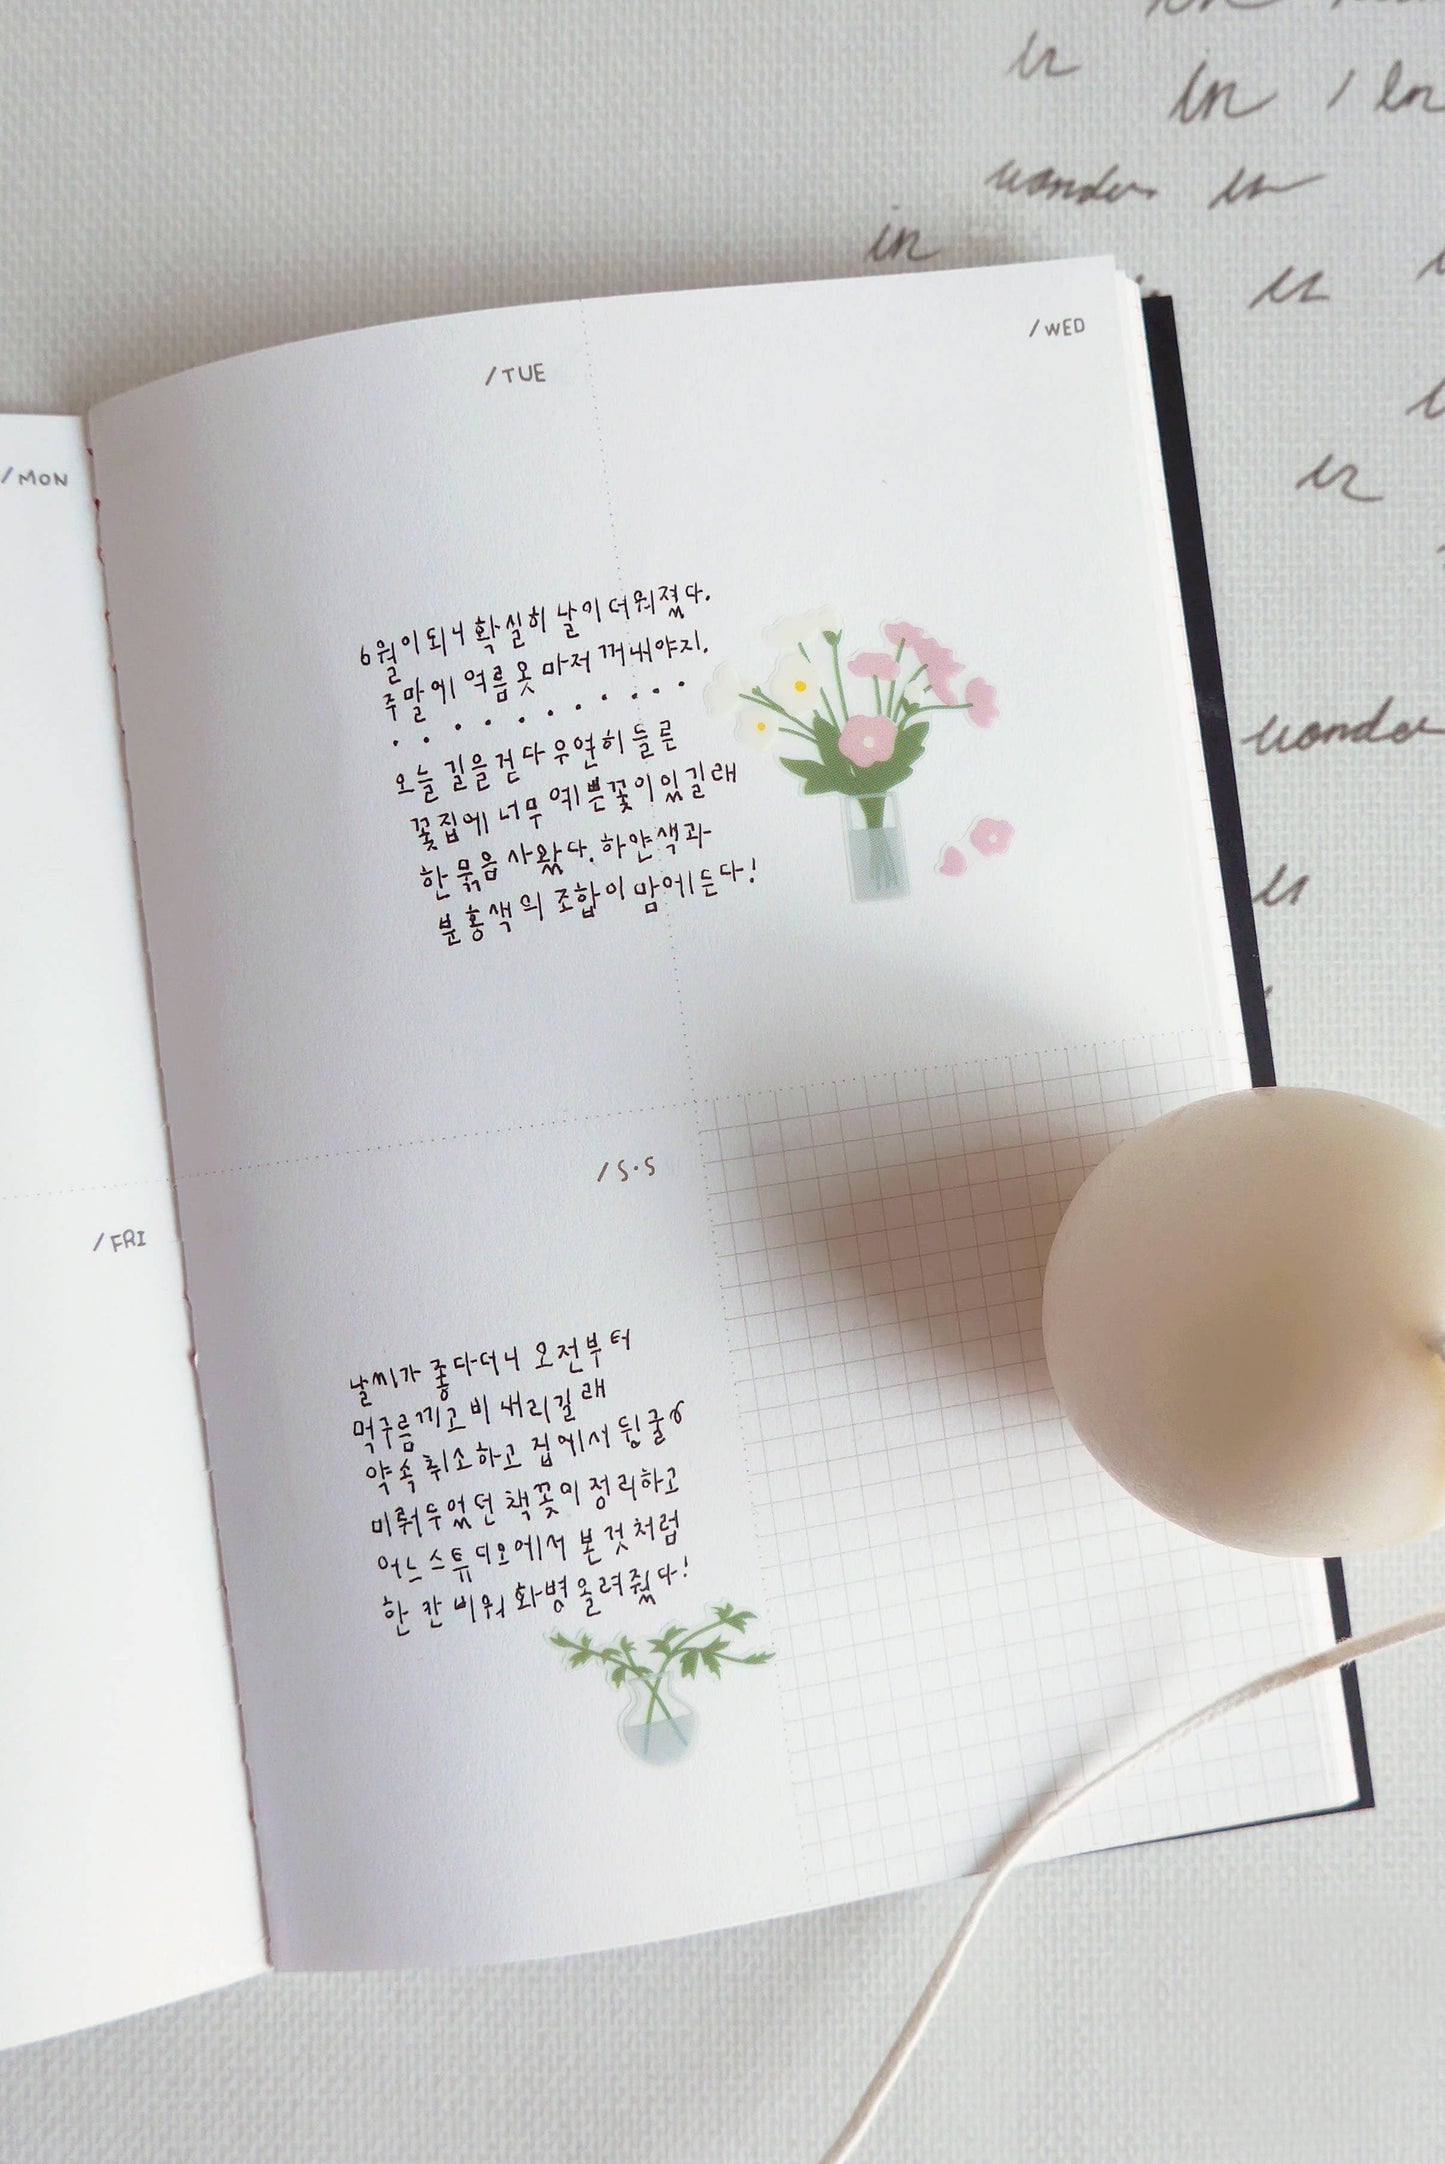 /MON
/TUE
/WED
6월이 되니 확실히 날이 더워졌다.
주말에 여름옷 마저 꺼내야지.
오늘 길을 걷다 우연히 들른
꽃집에 너무 예쁜 꽃이 있길래
한 묶음 사왔다. 하얀색과
분홍색의 조합이 맘에 든다!
/FRI
/S·S
날씨가 좋다더니 오전부터
먹구름 끼고 비 내리길래
약속 취소하고 집에서 뒹굴
미뤄두었던 책꽂이 정리하고
어느 스튜디오에서 본 것처럼
한 칸 비워 화병 올려줬다!
in
in
wander in
in
in
in
wander
in